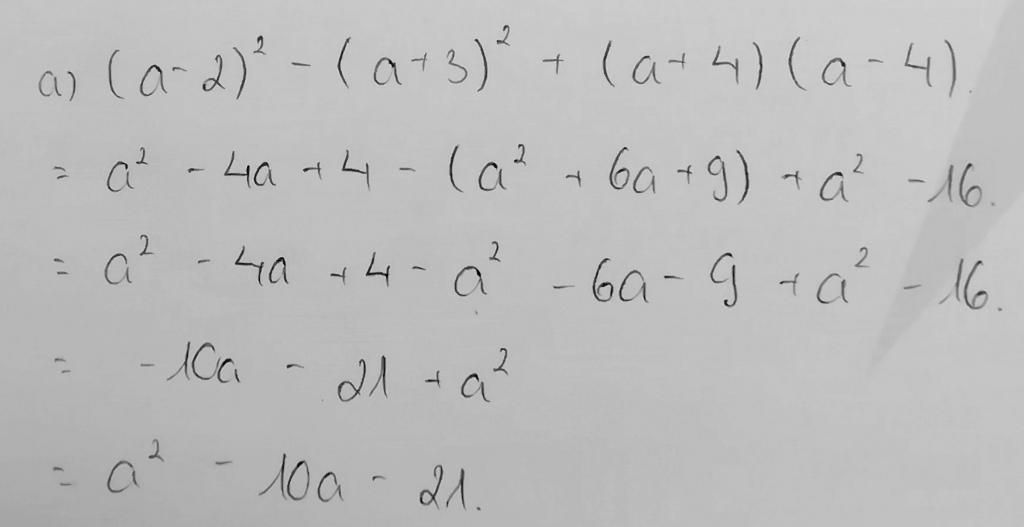 a) (a-2)² - (a+3)² + (a+4)(a-4).
= a² - 4a + 4 - (a² + 6a + 9) + a² - 16.
= a² - 4a + 4 - a² - 6a - 9 + a² - 16.
= -10a - 21 + a²
= a² - 10a - 21.